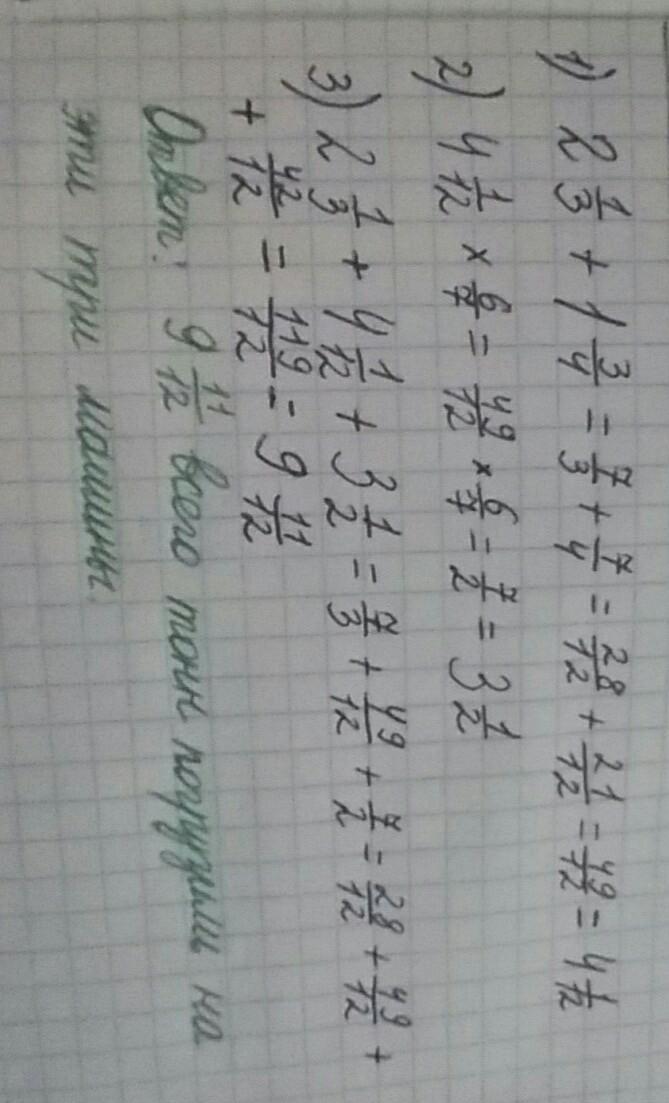 1) 2 1/3 + 1 3/4 = 7/3 + 7/4 = 28/12 + 21/12 = 49/12 = 4 1/12
2) 4 1/12 × 6/7 = 49/12 × 6/7 = 7/2 = 3 1/2
3) 2 1/3 + 4 1/12 + 3 1/2 = 7/3 + 49/12 + 7/2 = 28/12 + 49/12 +
+ 42/12 = 119/12 = 9 11/12
Ответ: 9 11/12 всего тонн погрузили на
эти три машины.